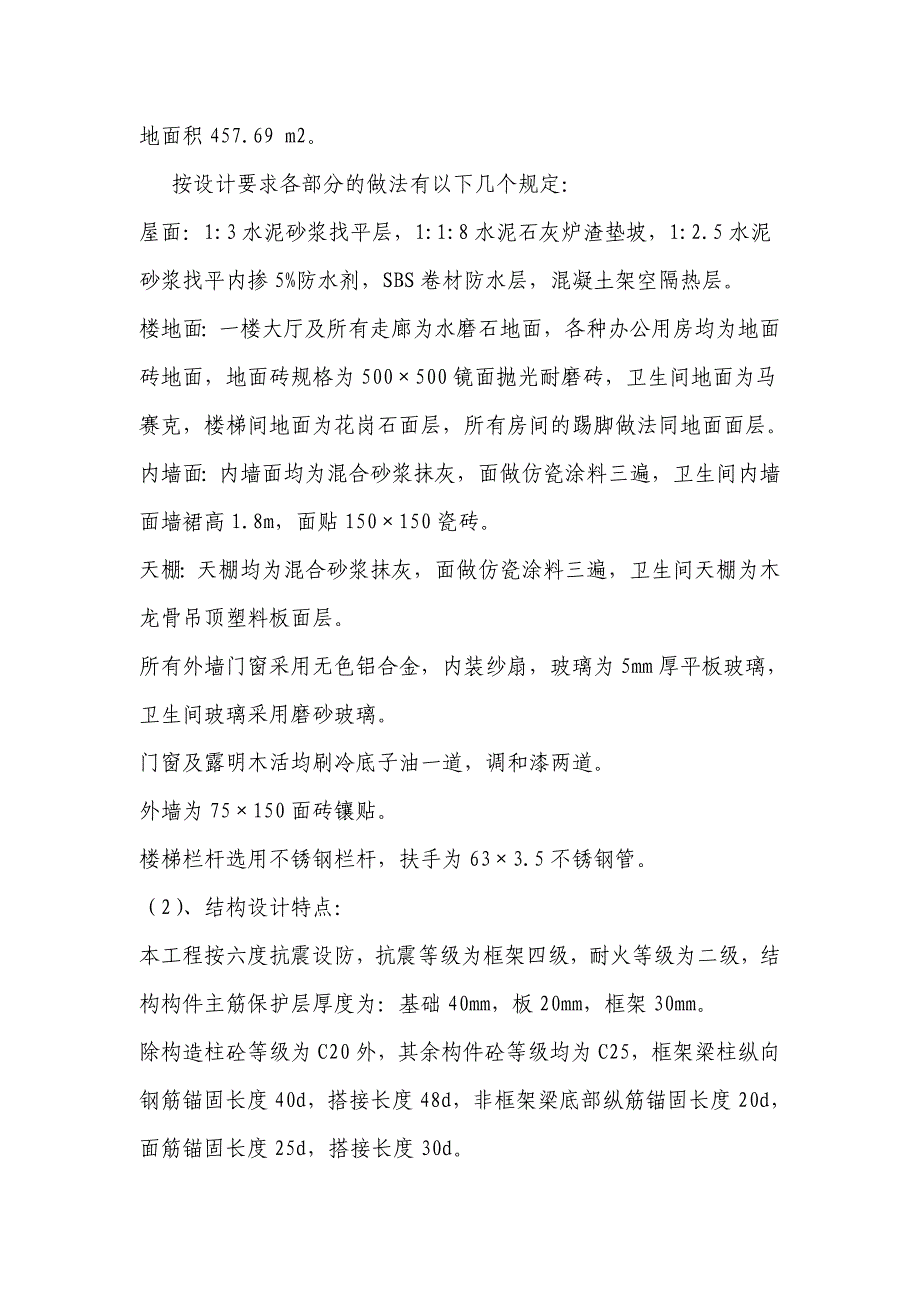 地面积 457.69 m2。
按设计要求各部分的做法有以下几个规定：
屋面：1:3 水泥砂浆找平层，1:1:8 水泥石灰炉渣垫坡，1:2.5 水泥
砂浆找平内掺 5%防水剂，SBS 卷材防水层，混凝土架空隔热层。
楼地面：一楼大厅及所有走廊为水磨石地面，各种办公用房均为地面
砖地面，地面砖规格为 500×500 镜面抛光耐磨砖，卫生间地面为马
赛克，楼梯间地面为花岗石面层，所有房间的踢脚做法同地面面层。
内墙面：内墙面均为混合砂浆抹灰，面做仿瓷涂料三遍，卫生间内墙
面墙裙高 1.8m，面贴 150×150 瓷砖。
天棚：天棚均为混合砂浆抹灰，面做仿瓷涂料三遍，卫生间天棚为木
龙骨吊顶塑料板面层。
所有外墙门窗采用无色铝合金，内装纱扇，玻璃为 5mm 厚平板玻璃，
卫生间玻璃采用磨砂玻璃。
门窗及露明木活均刷冷底子油一道，调和漆两道。
外墙为 75×150 面砖镶贴。
楼梯栏杆选用不锈钢栏杆，扶手为 63×3.5 不锈钢管。
（2）、结构设计特点：
本工程按六度抗震设防，抗震等级为框架四级，耐火等级为二级，结
构构件主筋保护层厚度为：基础 40mm，板 20mm，框架 30mm。
除构造柱砼等级为 C20 外，其余构件砼等级均为 C25，框架梁柱纵向
钢筋锚固长度 40d，搭接长度 48d，非框架梁底部纵筋锚固长度 20d，
面筋锚固长度 25d，搭接长度 30d。